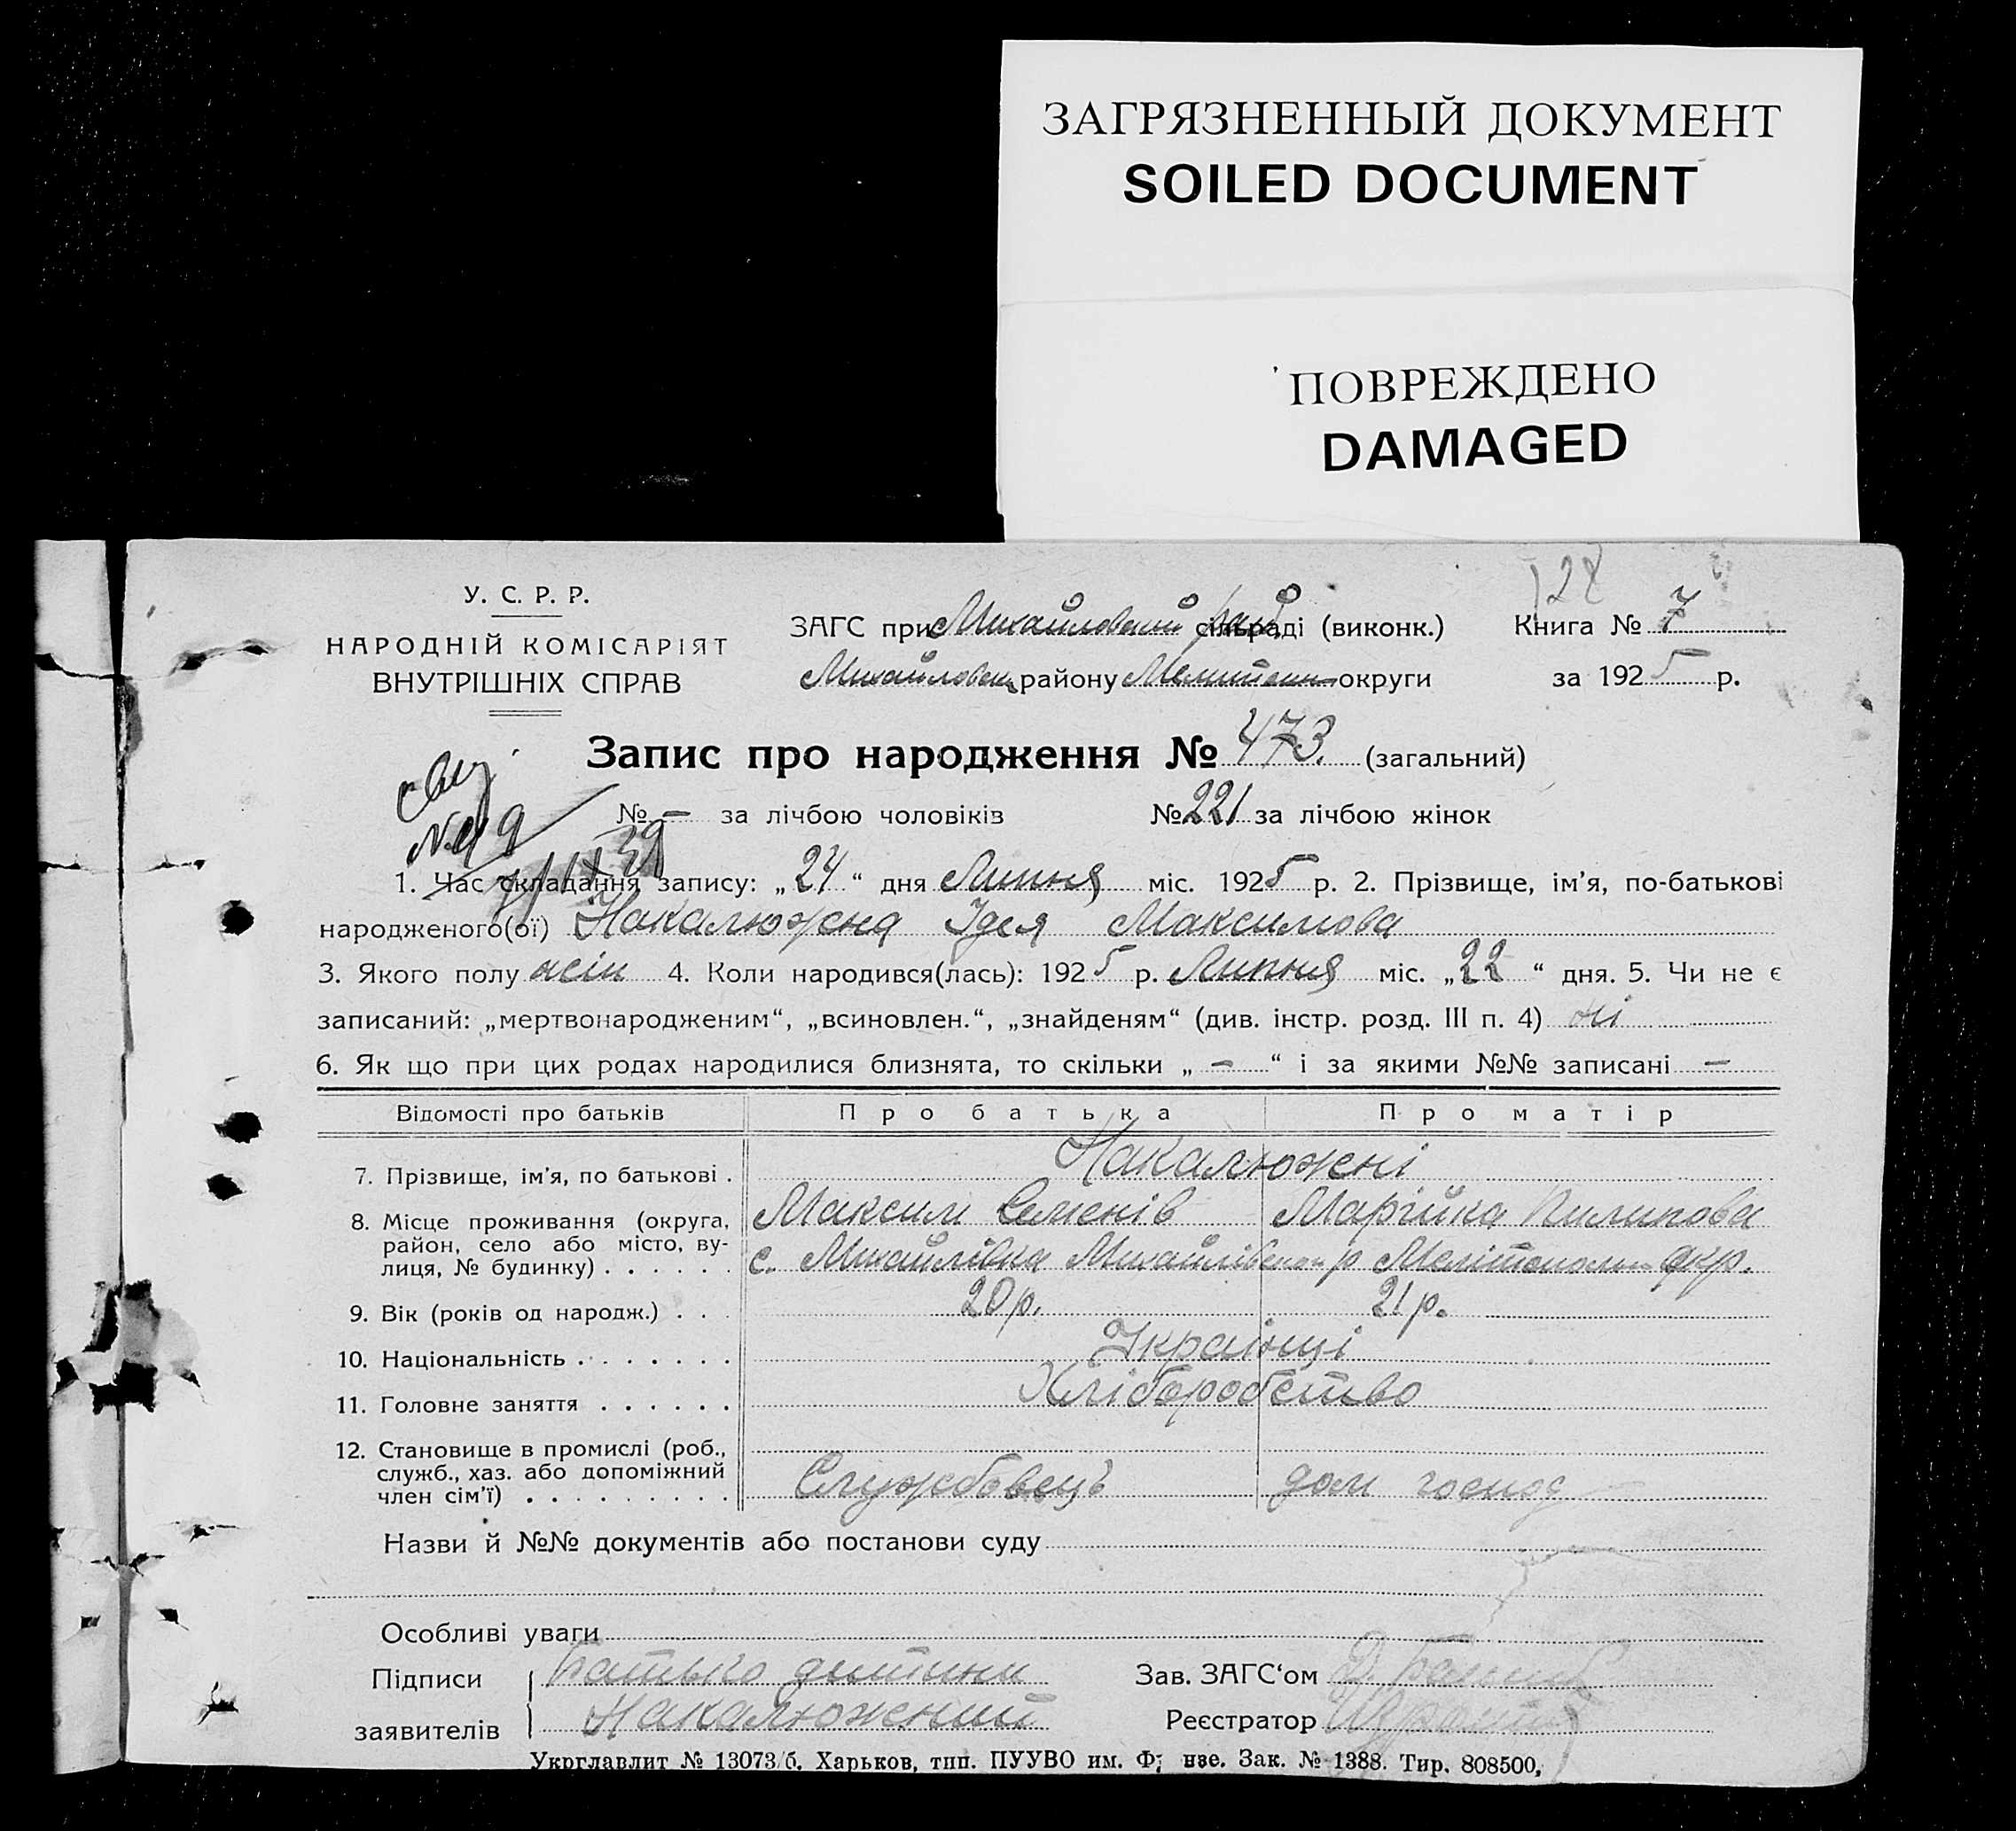 ЗАГРЯЗНЕННЫЙ ДОКУМЕНТ
SOILED DOCUMENT
ПОВРЕЖДЕНО
DAMAGED
128
У. С. Р. Р.
НАРОДНІЙ КОМІСАРІЯТ
ВНУТРІШНІХ СПРАВ
ЗАГС при Михайловский рай. сільраді (виконк.) Книга № 7
Михайловск району Мелитопол округи за 1925 р.
Запис про народження № 473. (загальний)
№ — за лічбою чоловіків № 221 за лічбою жінок
1. Час складання запису: „24“ дня Липня міс. 1925 р. 2. Прізвище, ім'я, по-батькові
народженого(ої) Накалюжна Ідея Максимова
3. Якого полу жін 4. Коли народився(лась): 1925 р. Липня міс. „22“ дня. 5. Чи не є
записаний: „мертвонародженим“, „всиновлен.“, „знайденям“ (див. інстр. розд. III п. 4) ні
6. Як що при цих родах народилися близнята, то скільки „ — “ і за якими №№ записані —
Відомості про батьків Про батька Про матір
7. Прізвище, ім'я, по батькові . Накалюжені
8. Місце проживання (округа, Максим Семенів Марійка Пилипова
район, село або місто, ву-
лиця, № будинку) . . . . . . с. Михайлівка Михайлівськ р Мелітопольськ окр.
9. Вік (років од народж.) . . . 20 р. 21 р.
10. Національність . . . . . . . Українці
11. Головне заняття . . . . . . Хліборобство
12. Становище в промислі (роб.,
служб., хаз. або допоміжний
член сім'ї) . . . . . . . . . Службовець дом господ
Назви й №№ документів або постанови суду
Особливі уваги
Підписи Батько дитини Зав. ЗАГС'ом
заявителів Накалюжений Реєстратор
Укрглавлит № 13073/б. Харьков, тип. ПУУВО им. Ф нзе. Зак. № 1388. Тир. 808500,